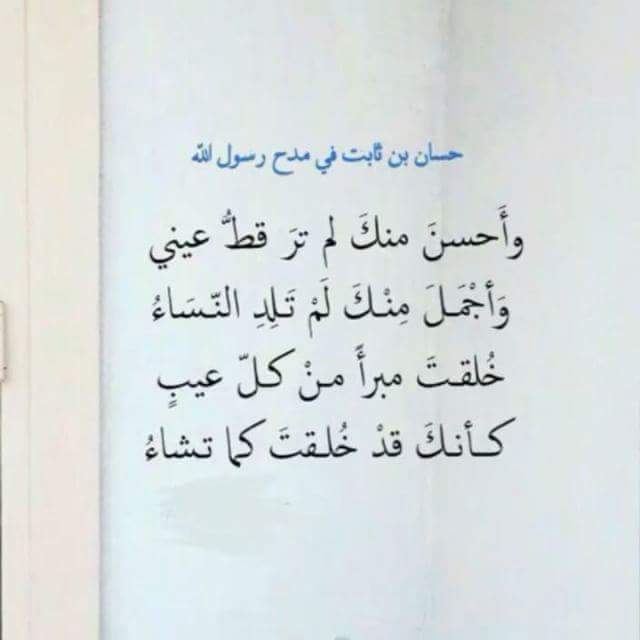 حسان بن ثابت في مدح رسول الله
وأَحسنَ منكَ لم ترَ قطُّ عيني
وَأجْمَلَ مِنْكَ لَمْ تَلِدِ النّسَاءُ
خُلقتَ مبرأً منْ كلّ عيبٍ
كأنكَ قدْ خُلقتَ كما تشاءُ